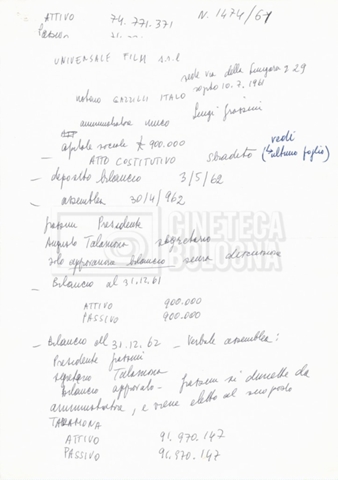 ATTIVO 74.771.371 N. 1474/61
Passivo
UNIVERSALE FILM s.r.l
sede via della Lungara 229
notaio GAZZILLI ITALO rogito 10.7.1961
amministratore unico Luigi
capitale sociale £ 900.000
ATTO COSTITUTIVO sbiadito (vedi ultimo foglio)
– deposito bilancio 3/5/62
– assemblea 30/4/962
Presidente
Augusto Talamona segretario
approvazione bilancio senza discussione
– Bilancio al 31.12.61
ATTIVO 900.000
PASSIVO 900.000
– Bilancio al 31.12.62 – Verbale assemblea:
Presidente
segretario Talamona
bilancio approvato – si dimette da
amministratore, e viene eletto al suo posto
TALAMONA
ATTIVO 91.970.147
PASSIVO 91.970.147
CINETECA
BOLOGNA